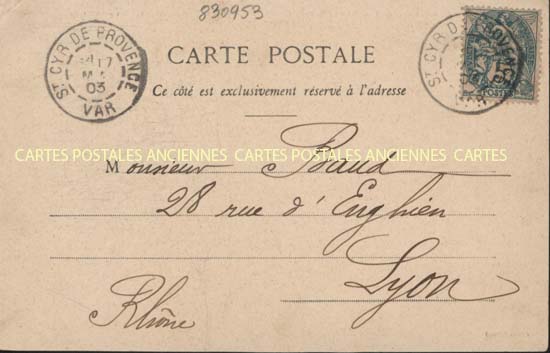 830953
ST CYR DE PROVENCE
17
03
VAR
CARTE POSTALE
Ce côté est exclusivement réservé à l'adresse
ST CYR D PROVENCE
VAR
POSTES
CARTES POSTALES ANCIENNES CARTES POSTALES ANCIENNES CARTES
Monsieur Baud
28 rue d'Enghien
Lyon
Rhône